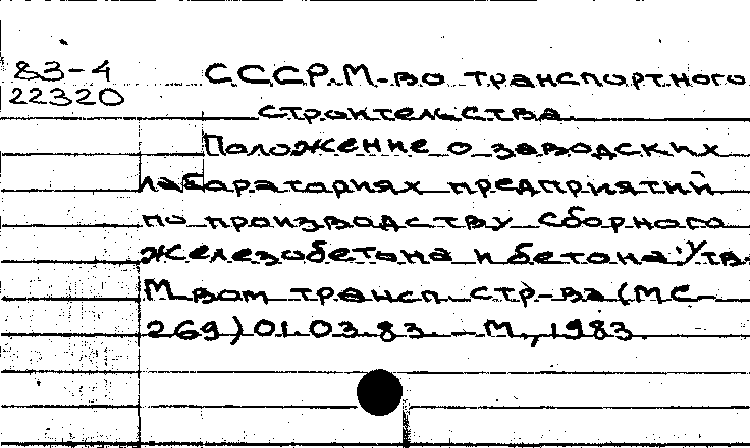 83-4 СССР. М-во транспортного
22320 строительства.
Положение о заводских
лабораториях предприятий
по производству сборного
железобетона и бетона: Утв.
М-вом трансп. стр-ва (МС-
269) 01.03.83. – М., 1983.